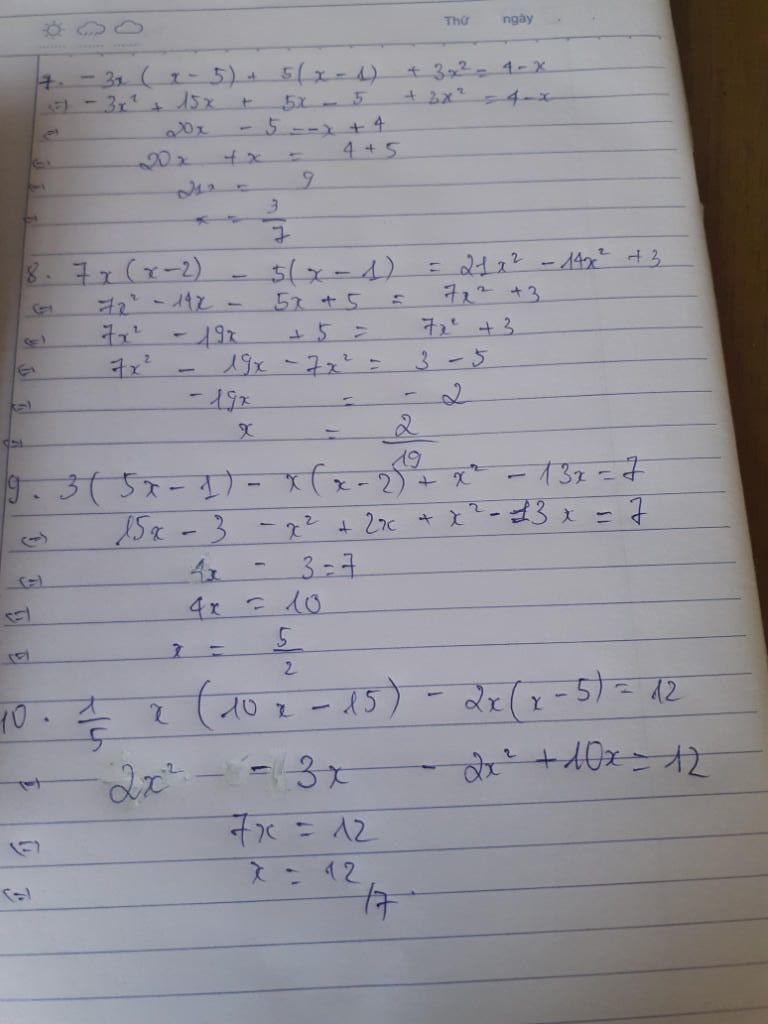 Thứ ngày
7. - 3x ( x - 5) + 5(x - 1) + 3x² = 4 - x
(=) - 3x² + 15x + 5x - 5 + 3x² = 4 - x
(=) 20x - 5 = -x + 4
(=) 20x + x = 4 + 5
(=) 21x = 9
(=) x = 3/7
8. 7x(x - 2) - 5(x - 1) = 21x² - 14x² + 3
(=) 7x² - 14x - 5x + 5 = 7x² + 3
(=) 7x² - 19x + 5 = 7x² + 3
(=) 7x² - 19x - 7x² = 3 - 5
(=) -19x = - 2
(=) x = 2/19
9. 3( 5x - 1) - x(x - 2) + x² - 13x = 7
(=) 15x - 3 - x² + 2x + x² - 13x = 7
(=) 4x - 3 = 7
(=) 4x = 10
(=) x = 5/2
10. 1/5 x (10x - 15) - 2x(x - 5) = 12
(=) 2x² - 3x - 2x² + 10x = 12
(=) 7x = 12
(=) x = 12/7